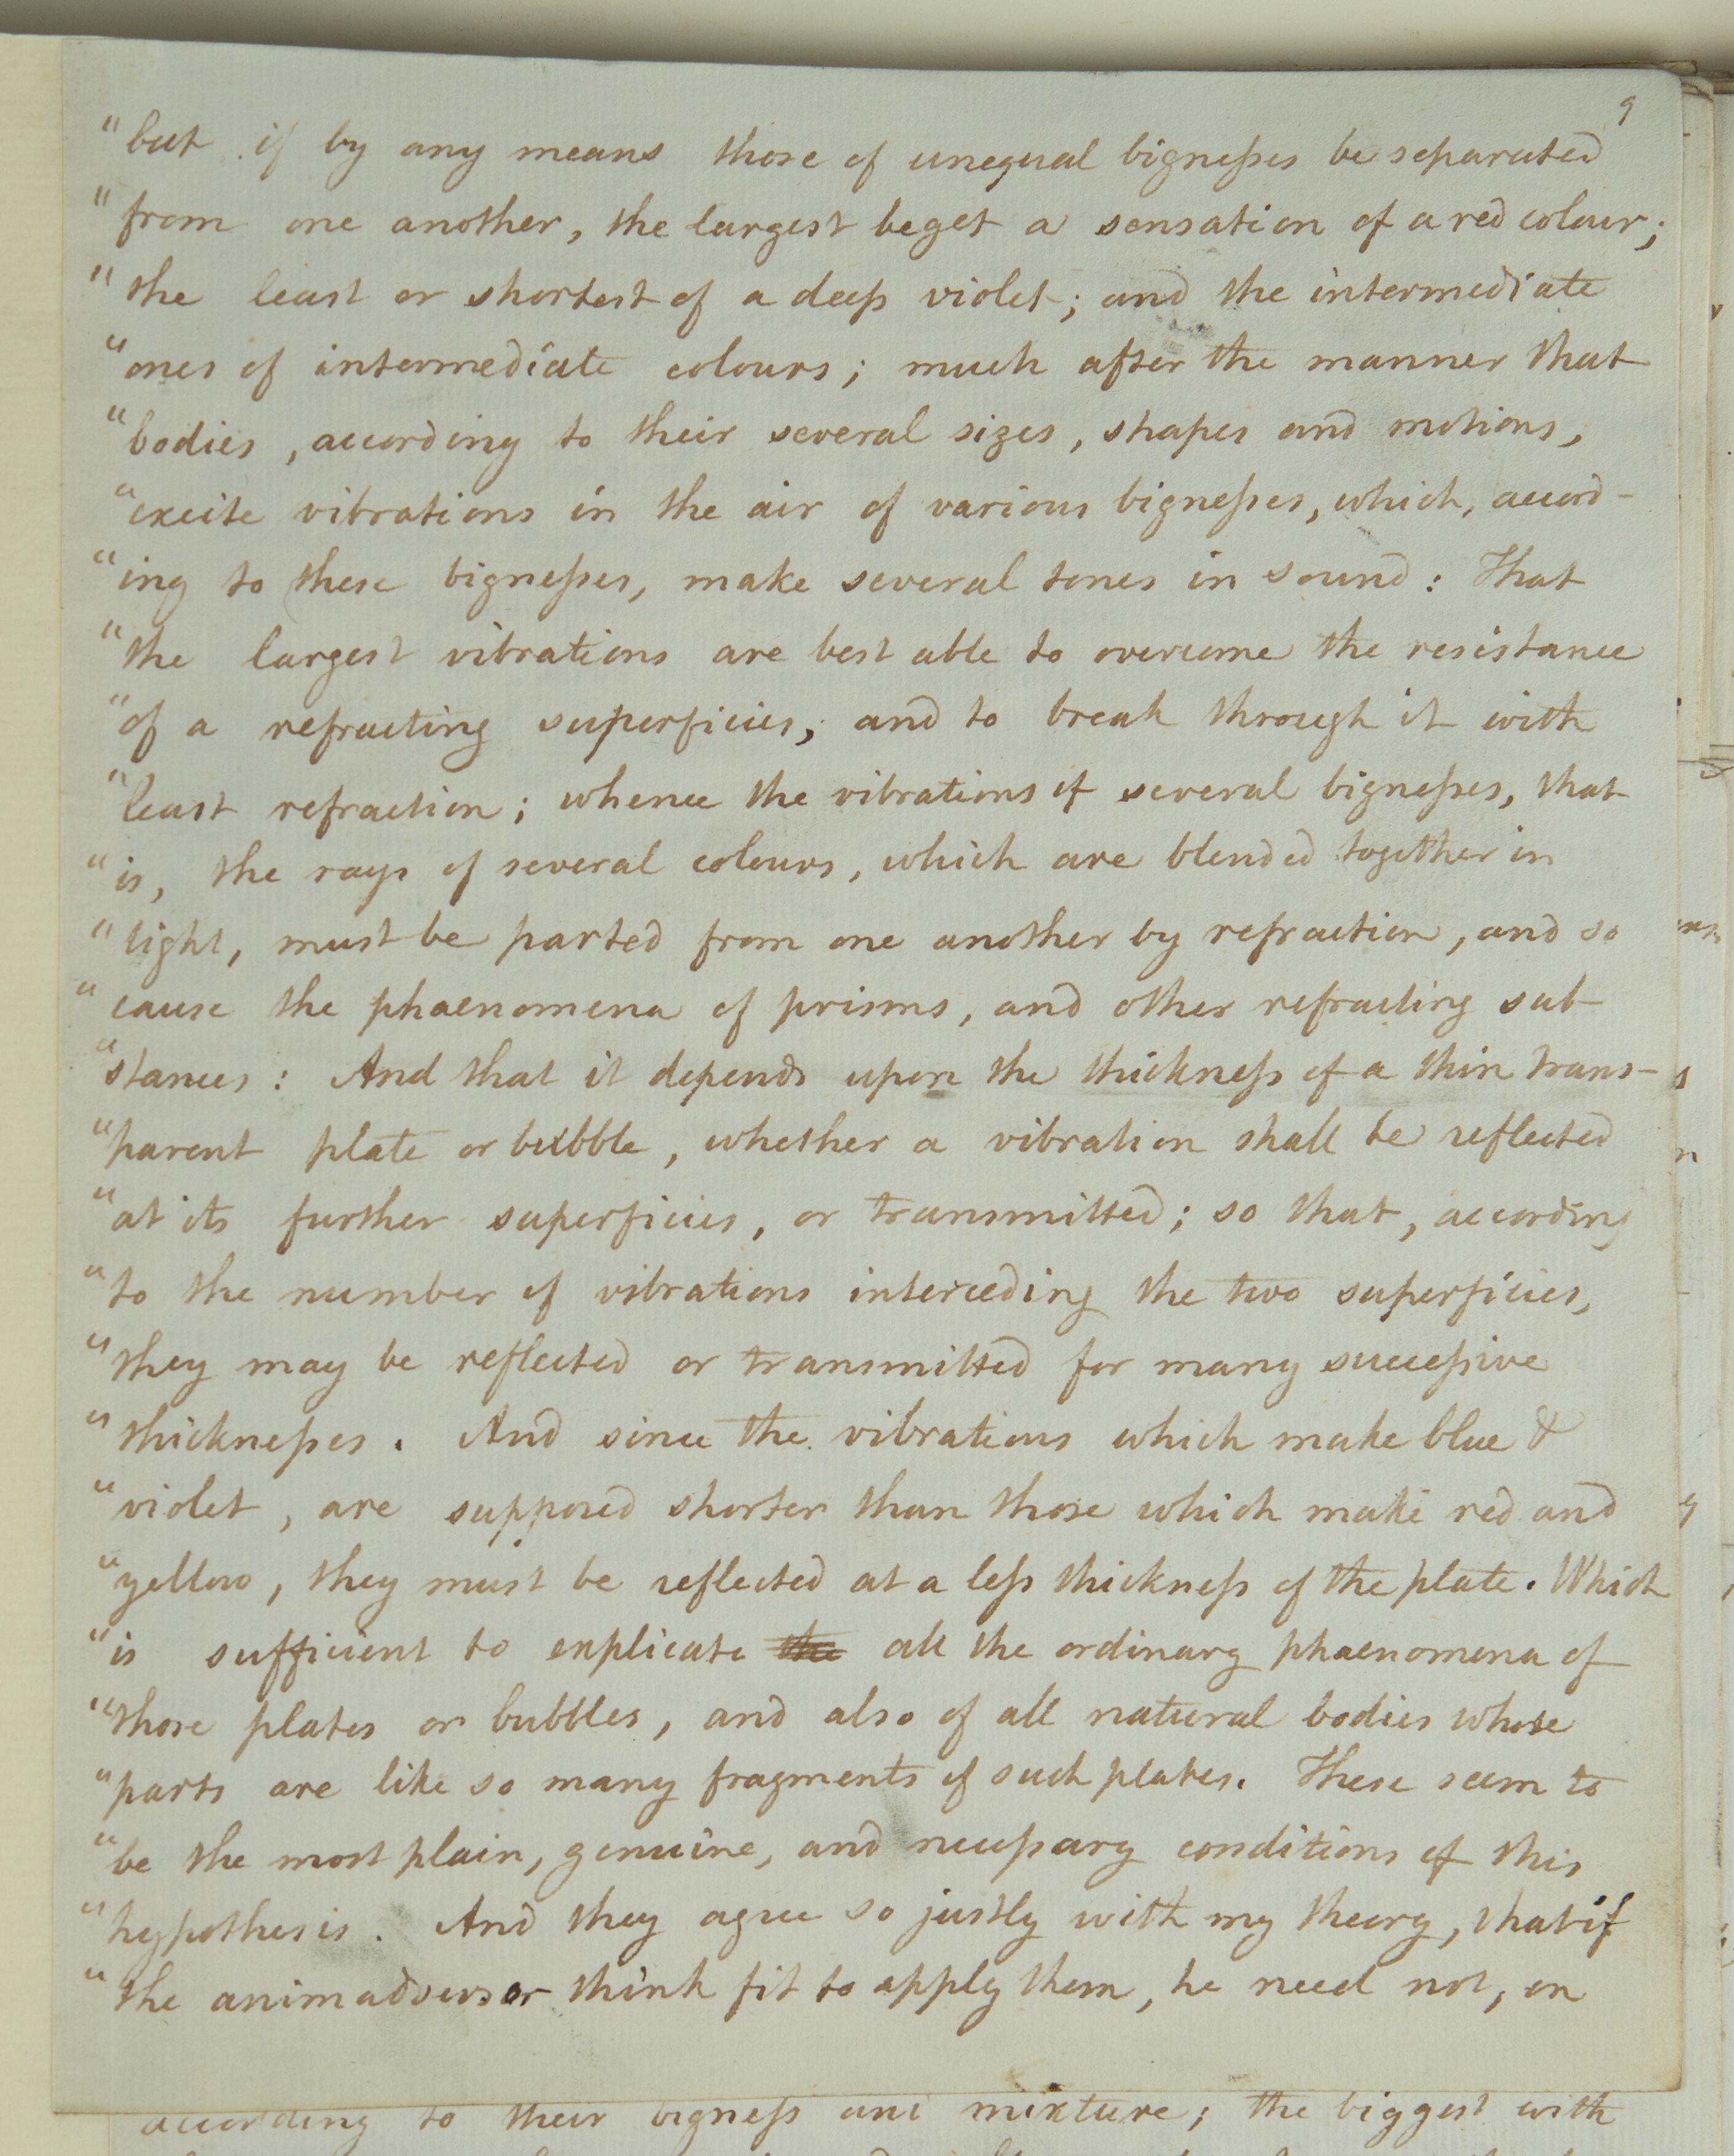 9
"but if by any means those of unequal bignesses be separated
"from one another, the largest beget a sensation of a red colour;
"the least or shortest of a deep violet; and the intermediate
"ones of intermediate colours; much after the manner that
"bodies, according to their several sizes, shapes and motions,
"excite vibrations in the air of various bignesses, which, accord-
"ing to these bignesses, make several tones in sound: That
"the largest vibrations are best able to overcome the resistance
"of a refracting superficies, and to break through it with
"least refraction; whence the vibrations of several bignesses, that
"is, the rays of several colours, which are blended together in
"light, must be parted from one another by refraction, and so
"cause the phaenomena of prisms, and other refracting sub-
"stances: And that it depends upon the thickness of a thin trans-
"parent plate or bubble, whether a vibration shall be reflected
"at its further superficies, or transmitted; so that, according
"to the number of vibrations interceding the two superficies,
"they may be reflected or transmitted for many successive
"thicknesses. And since the vibrations which make blue &
"violet, are supposed shorter than those which make red and
"yellow, they must be reflected at a less thickness of the plate. Which
"is sufficient to explicate the all the ordinary phaenomena of
"those plates or bubbles, and also of all natural bodies whose
"parts are like so many fragments of such plates. These seem to
"be the most plain, genuine, and necessary conditions of this
"hypothesis. And they agree so justly with my theory, that if
"the animadversor think fit to apply them, he need not, on
according to their bigness and mixture; the biggest with